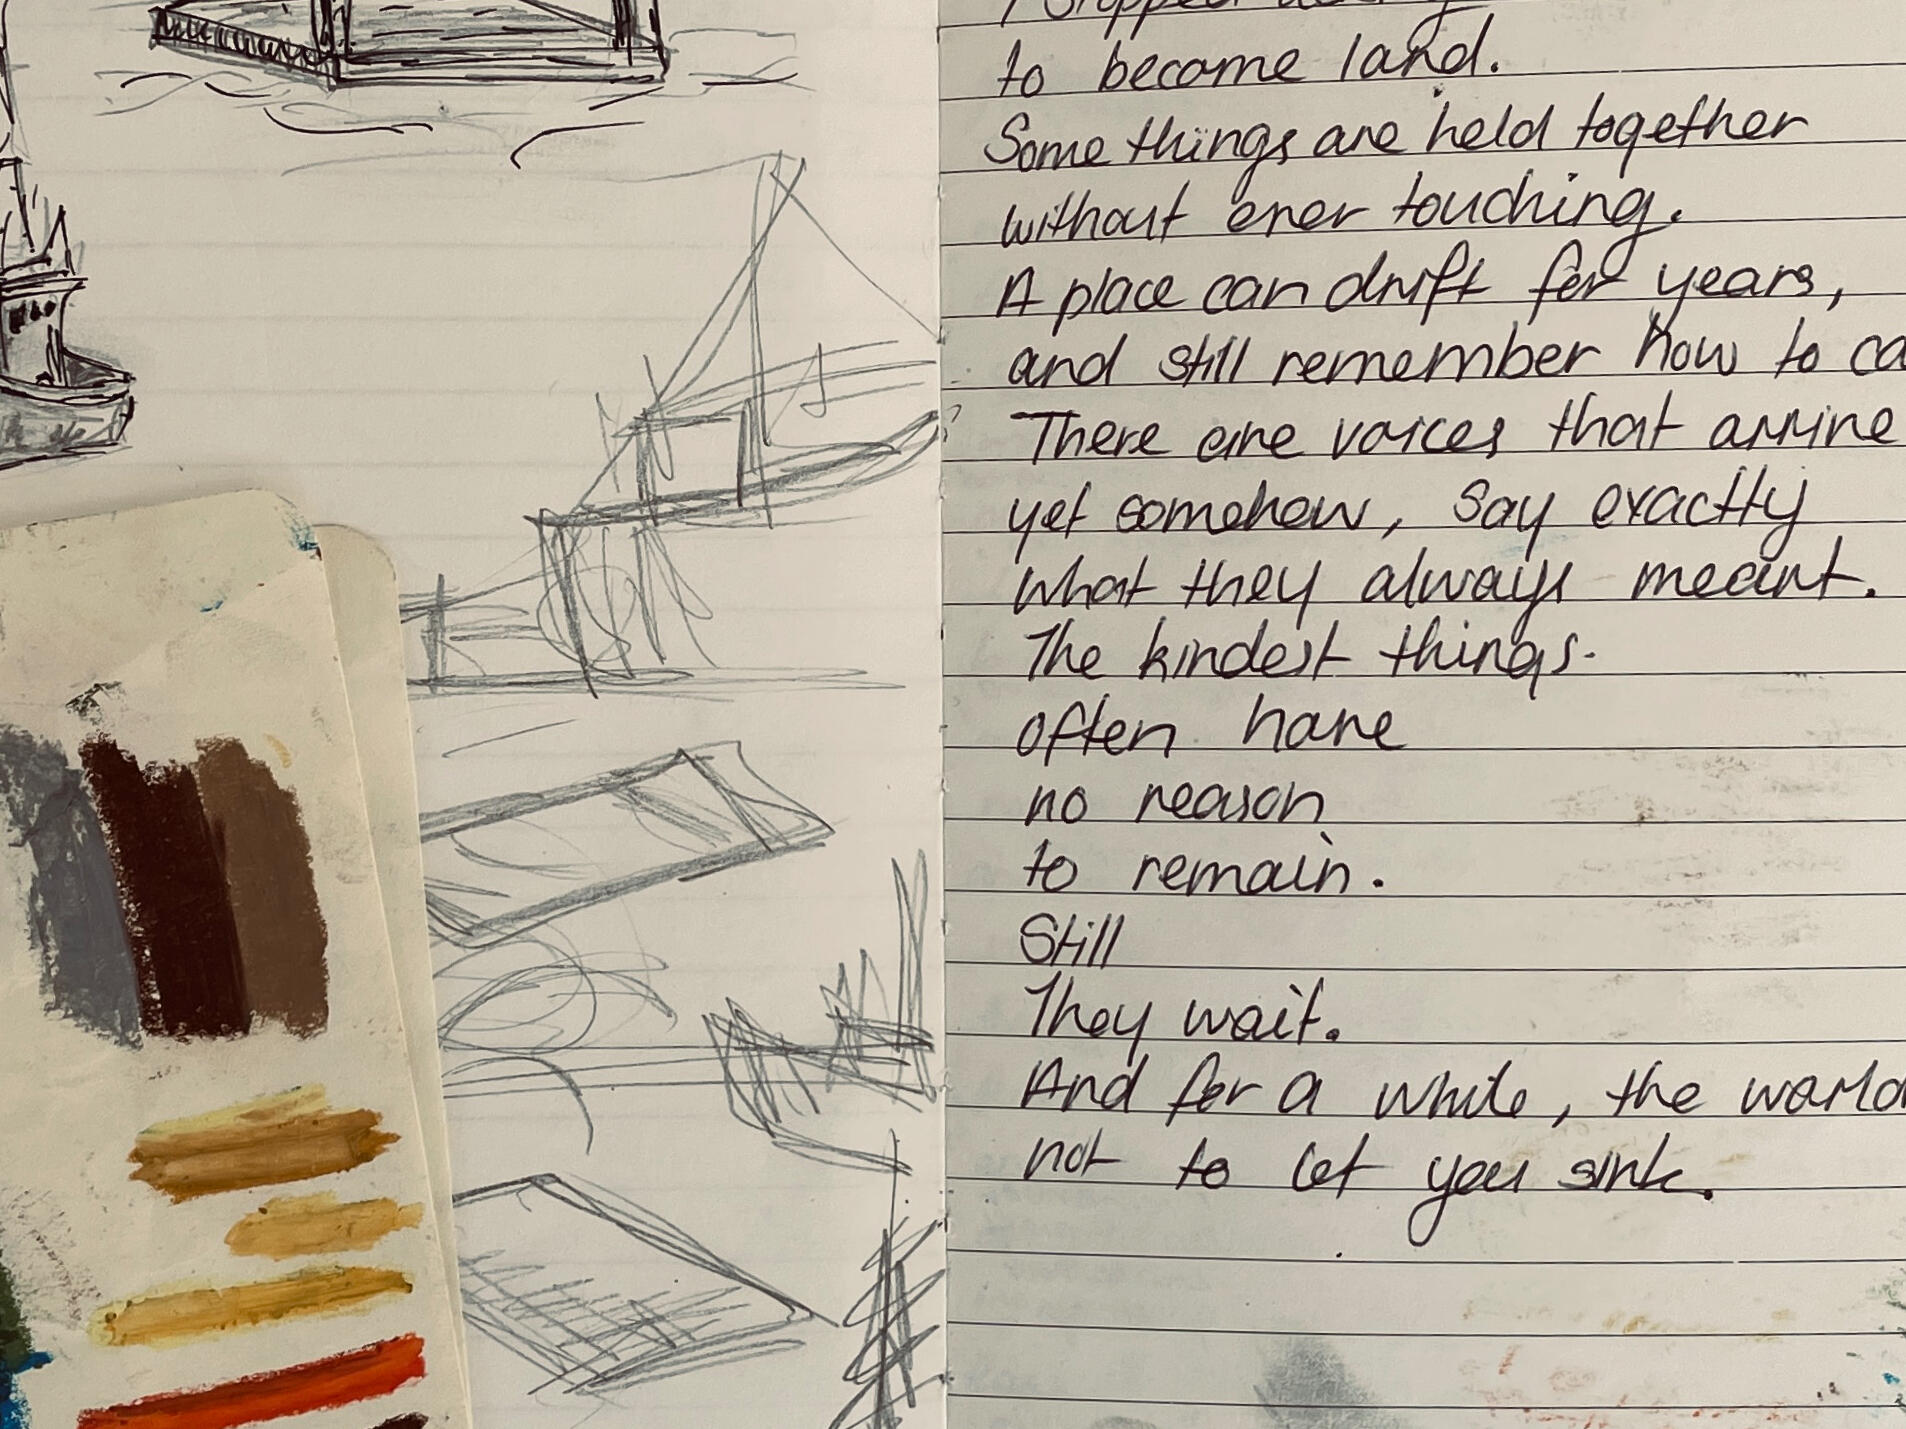 I stopped asking
to become land.
Some things are held together
without ever touching.
A place can drift for years,
and still remember how to
There are voices that arrive
yet somehow, say exactly
what they always meant.
The kindest things.
often have
no reason
to remain.
Still
They wait.
And for a while, the world
not to let you sink.